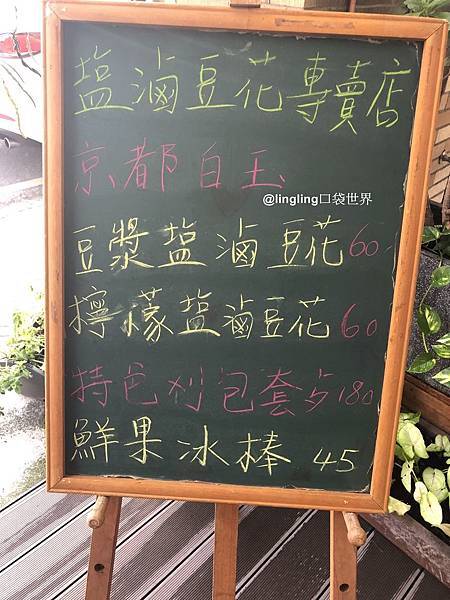 塩滷豆花專賣店
京都白玉
@lingling口袋世界
豆漿塩滷豆花60
檸檬塩滷豆花60
特色刈包套夕180
鮮果冰棒 45